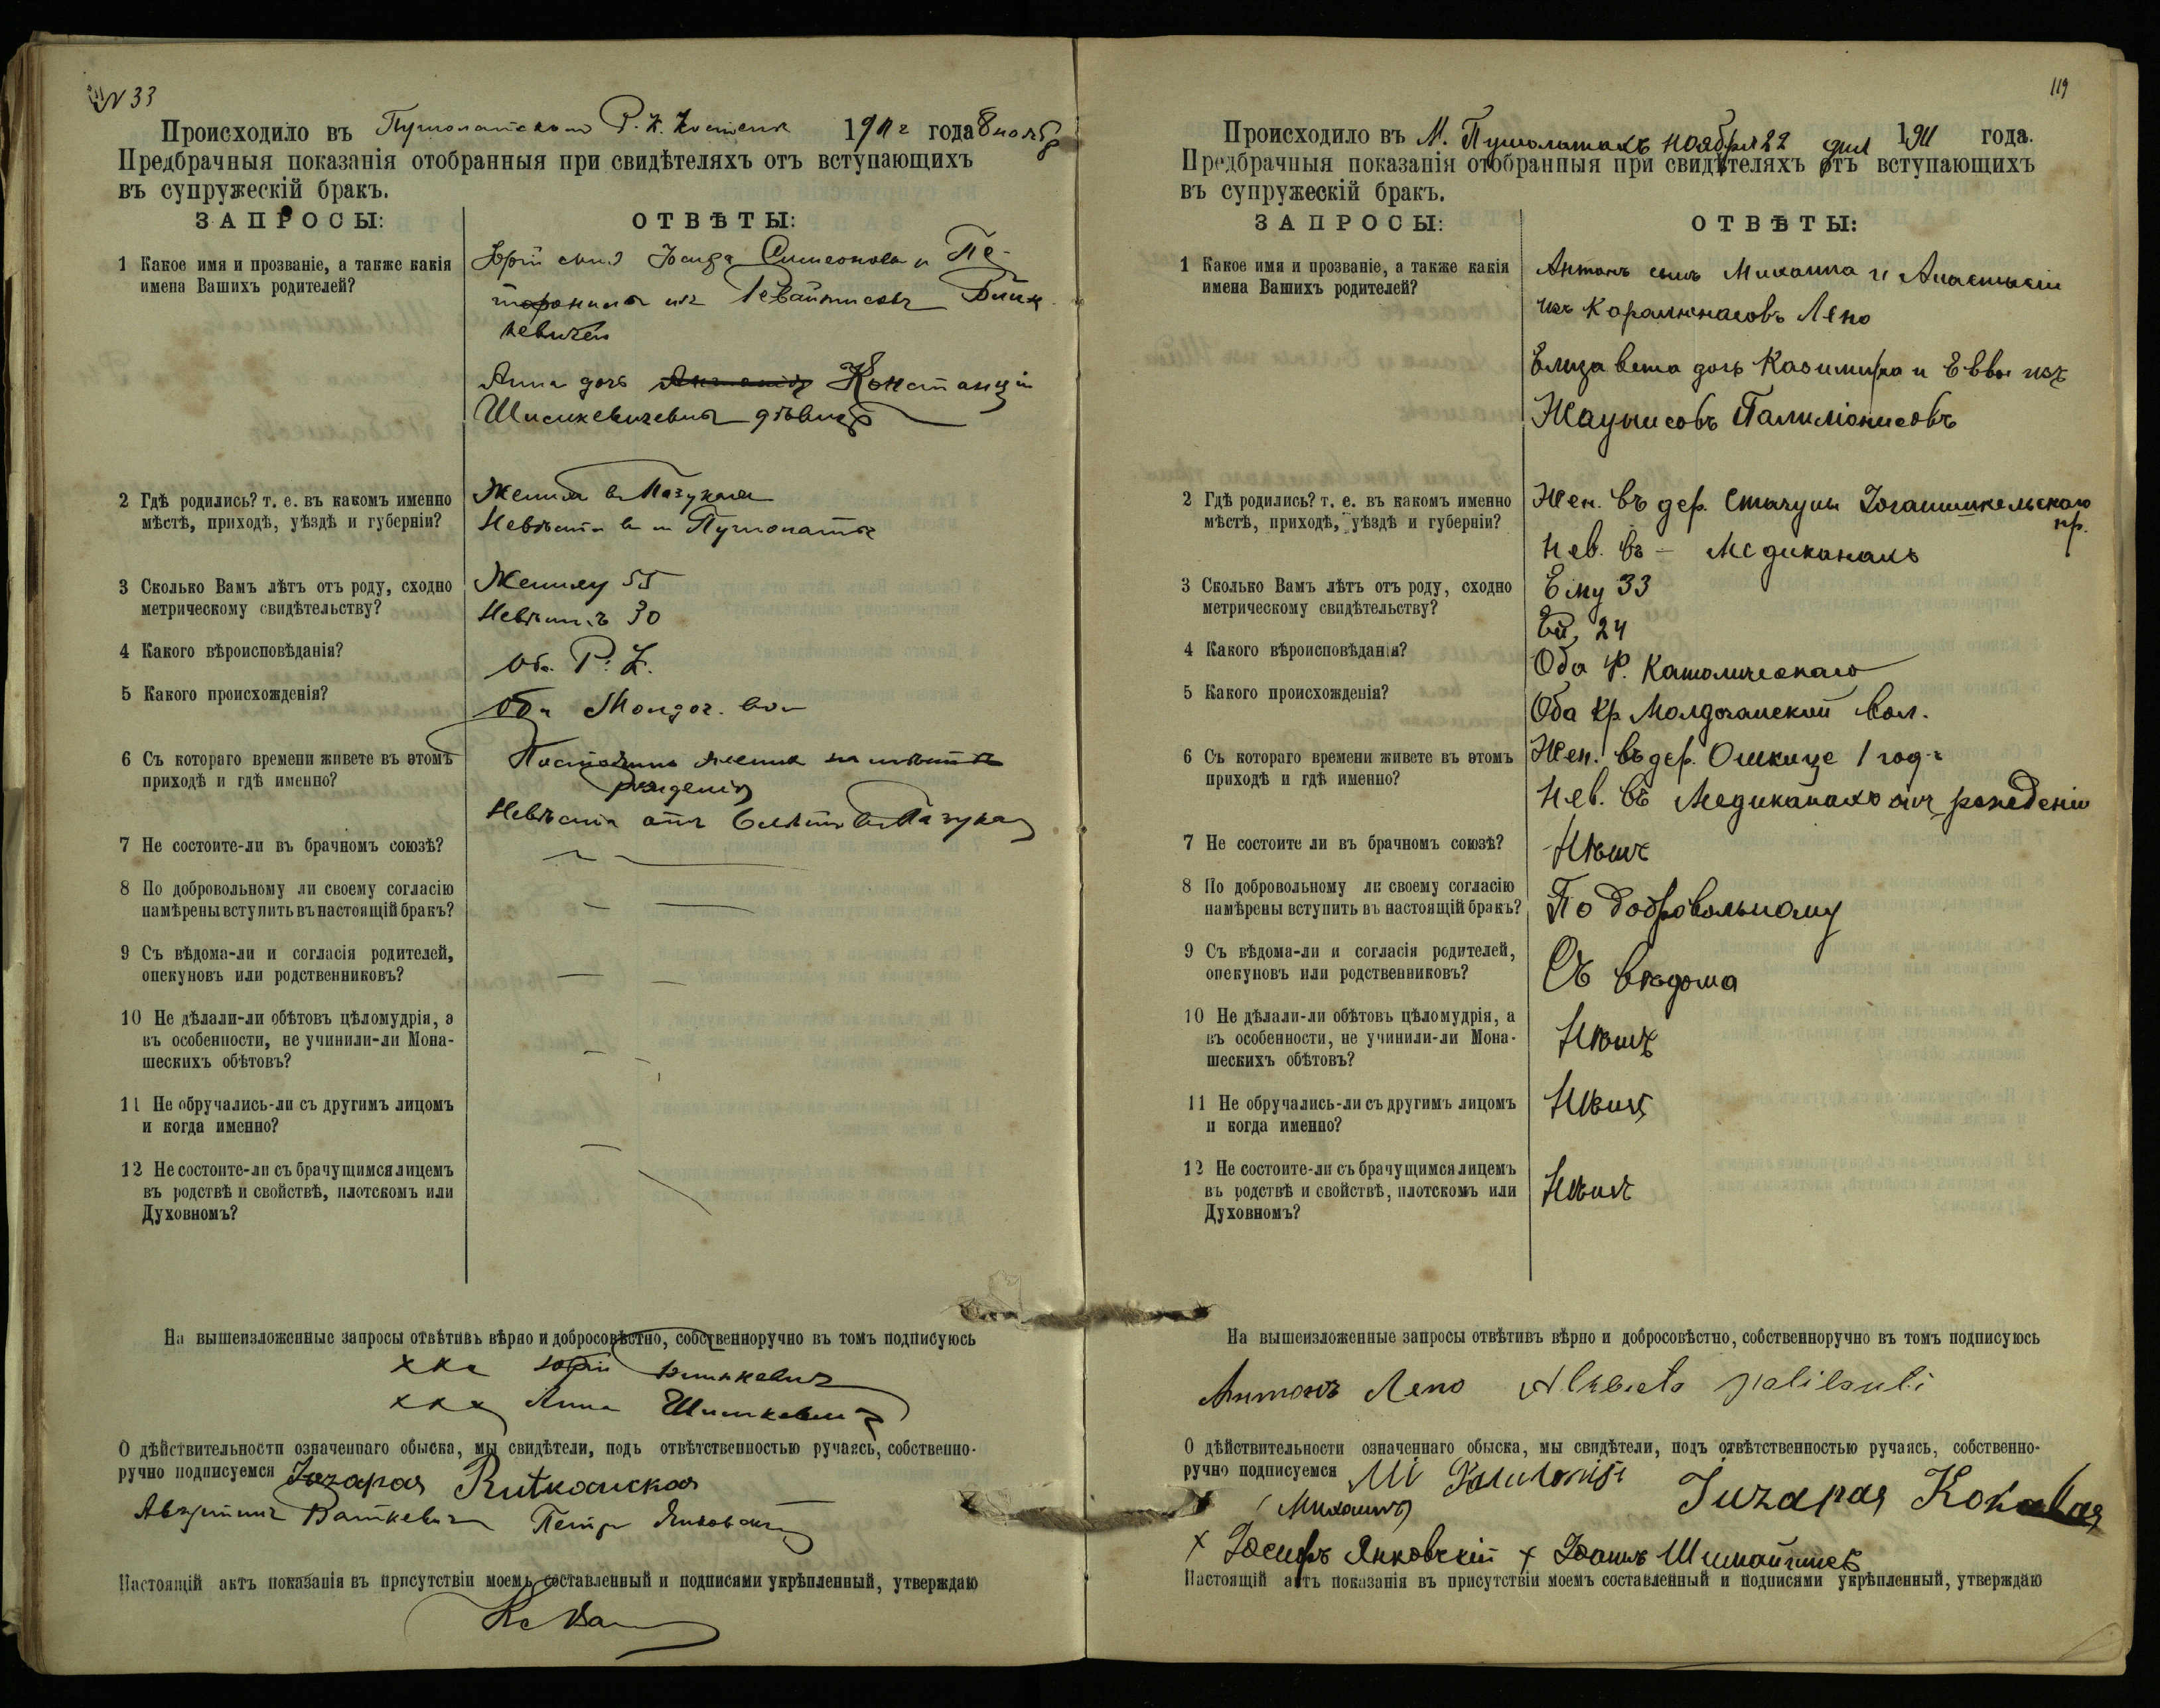 № 33
Происходило въ Р. К. 1911 г года 8 ноябр
Предбрачныя показанія отобранныя при свидѣтеляхъ отъ вступающихъ
въ супружескій бракъ.
ЗАПРОСЫ: ОТВѢТЫ:
1 Какое имя и прозваніе, а также какія
имена Вашихъ родителей?
Юрій сынъ
Анна дочь Констанціи
Шишкевичевна дѣвица
2 Гдѣ родились? т. е. въ какомъ именно
мѣстѣ, приходѣ, уѣздѣ и губерніи?
Женихъ в Пазукалн
Невѣста в м Пушолаты
3 Сколько Вамъ лѣтъ отъ роду, сходно
метрическому свидѣтельству?
Жениху 55
Невѣстѣ 30
4 Какого вѣроисповѣданія?
Оба Р. К.
5 Какого происхожденія?
Оба вол
6 Съ котораго времени живете въ этомъ
приходѣ и гдѣ именно?
женихъ на мѣстѣ
рожденія
Невѣста отъ
7 Не состоите-ли въ брачномъ союзѣ?
8 По добровольному ли своему согласію
намѣрены вступить въ настоящій бракъ?
9 Съ вѣдома-ли и согласія родителей,
опекуновъ или родственниковъ?
10 Не дѣлали-ли обѣтовъ цѣломудрія, а
въ особенности, не учинили-ли Мона-
шескихъ обѣтовъ?
11 Не обручались-ли съ другимъ лицомъ
и когда именно?
12 Не состоите-ли съ брачущимся лицемъ
въ родствѣ и свойствѣ, плотскомъ или
Духовномъ?
На вышеизложенные запросы отвѣтивъ вѣрно и добросовѣстно, собственноручно въ томъ подписуюсь
ххх Юрій
ххх Анна Шишкевич
О дѣйствительности означеннаго обыска, мы свидѣтели, подъ отвѣтственностью ручаясь, собственно-
ручно подписуемся
Петръ Янковскій
Настоящій актъ показанія въ присутствіи моемъ составленный и подписями укрѣпленный, утверждаю
119
Происходило въ М. Пушолатахъ ноября 22 дня 1911 года.
Предбрачныя показанія отобранныя при свидѣтеляхъ отъ вступающихъ
въ супружескій бракъ.
ЗАПРОСЫ: ОТВѢТЫ:
1 Какое имя и прозваніе, а также какія
имена Вашихъ родителей?
Антонъ сынъ Михаила и Анастасіи
изъ Лепо
Елизавета дочь Казимира и Еввы изъ
Жаунисовъ Палиліонисовъ
2 Гдѣ родились? т. е. въ какомъ именно
мѣстѣ, приходѣ, уѣздѣ и губерніи?
Жен. въ дер. Стачуны Іоганишкельскаго
пр.
Нев. въ — Медиканахъ
3 Сколько Вамъ лѣтъ отъ роду, сходно
метрическому свидѣтельству?
Ему 33
Ей, 24
4 Какого вѣроисповѣданія?
Оба р. Католическаго
5 Какого происхожденія?
Оба кр вол.
6 Съ котораго времени живете въ этомъ
приходѣ и гдѣ именно?
Жен. въ дер. Ошкице 1 годъ
Нев. въ Медиканахъ отъ рожденія
7 Не состоите ли въ брачномъ союзѣ?
Нѣтъ
8 По добровольному ли своему согласію
намѣрены вступить въ настоящій бракъ?
По добровольному
9 Съ вѣдома-ли и согласія родителей,
опекуновъ или родственниковъ?
Съ вѣдома
10 Не дѣлали-ли обѣтовъ цѣломудрія, а
въ особенности, не учинили-ли Мона-
шескихъ обѣтовъ?
Нѣтъ
11 Не обручались-ли съ другимъ лицомъ
и когда именно?
Нѣтъ
12 Не состоите-ли съ брачущимся лицемъ
въ родствѣ и свойствѣ, плотскомъ или
Духовномъ?
Нѣтъ
На вышеизложенные запросы отвѣтивъ вѣрно и добросовѣстно, собственноручно въ томъ подписуюсь
Антонъ Лепо
О дѣйствительности означеннаго обыска, мы свидѣтели, подъ отвѣтственностью ручаясь, собственно-
ручно подписуемся
х Іосифъ Янковскій х Іоаннъ
Настоящій актъ показанія въ присутствіи моемъ составленный и подписями укрѣпленный, утверждаю